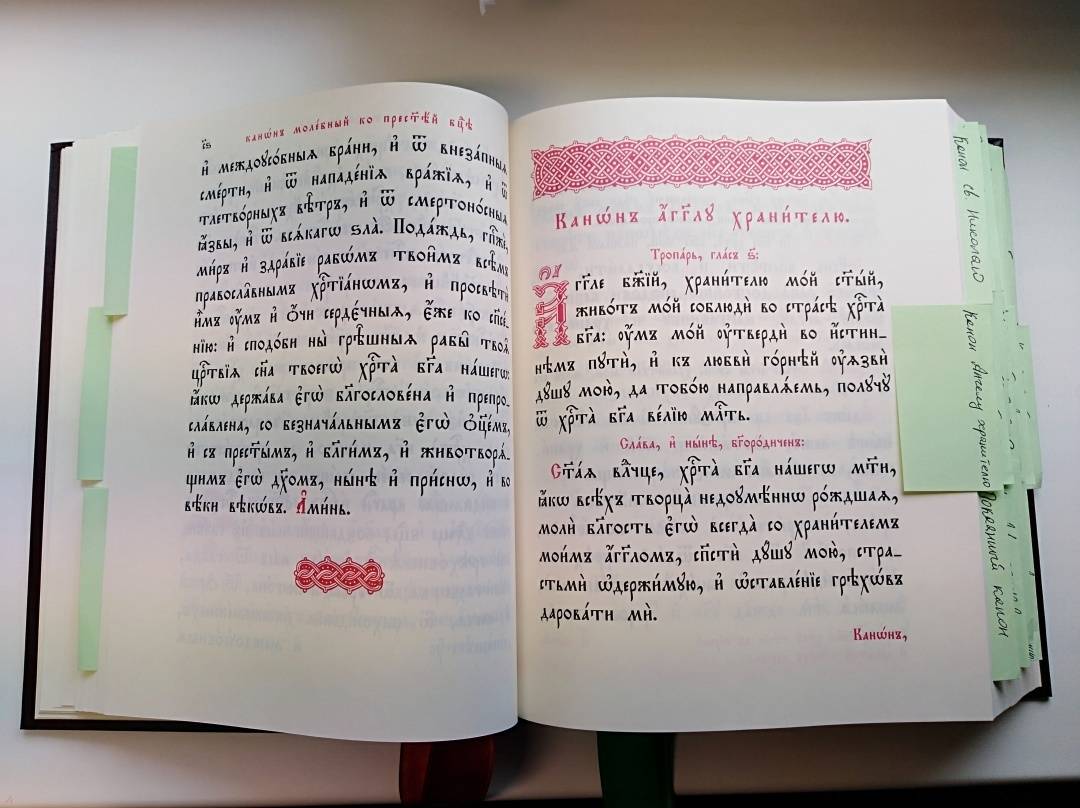 і҃ѕ
канѡ́нъ моле́бный ко прест҃ѣ́й бц҃ѣ
и҆ междоусо́бныѧ бра́ни, и҆ ѿ внеза́пныѧ
сме́рти, и҆ ѿ нападе́нїѧ вра́жїѧ, и҆ ѿ
тлетво́рныхъ вѣ̑тръ, и҆ ѿ смертоно́сныѧ
ꙗ҆́звы, и҆ ѿ всѧ́кагѡ ѕла̀. Пода́ждь, гпⷭ҇же,
ми́ръ и҆ здра́вїе рабѡ́мъ твои̑мъ всѣ̑мъ
правосла̑внымъ хрⷭ҇тїа́нѡмъ, и҆ просвѣтѝ
и҆̀мъ ᲂу҆́мъ и҆ ѻ҆́чи серде́чныѧ, є҆́же ко сп҃се-
нїю: и҆ сподо́би ны̀ грѣ́шныѧ рабы̑ твоѧ̑
црⷭ҇твїѧ сн҃а твоегѡ̀ хрⷭ҇та̀ бг҃а на́шегѡ:
ꙗ҆́кѡ держа́ва є҆гѡ̀ блгⷭ҇ослове́на и҆ препро-
сла́влена, со безнача́льнымъ є҆гѡ̀ ѻ҆ц҃е́мъ,
и҆ съ прест҃ы́мъ, и҆ бл҃ги́мъ, и҆ животворѧ́-
щимъ є҆гѡ̀ дх҃омъ, ны́нѣ и҆ при́снѡ, и҆ во
вѣ́ки вѣкѡ́въ. А҆ми́нь.
Канѡ́нъ а҆́гг҃лу храни́телю.
Тропа́рь, гла́съ ѕ҃:
А҆́гг҃ле бж҃їй, храни́телю мо́й ст҃ы́й,
живо́тъ мо́й соблюдѝ во стра́сѣ хрⷭ҇та̀
бг҃а: ᲂу҆́мъ мо́й ᲂу҆твердѝ во и҆́стин-
нѣмъ пути́, и҆ къ любвѝ го́рнѣй ᲂу҆ѧзвѝ
дꙋ́шꙋ мою̀, да тобо́ю направлѧ́емь, полꙋчꙋ̀
ѿ хрⷭ҇та̀ бг҃а ве́лїю млⷭ҇ть.
Сла́ва, и҆ ны́нѣ, бг҃оро́диченъ:
Ст҃а́ѧ влⷣчце, хрⷭ҇та̀ бг҃а на́шегѡ мт҃и,
ꙗ҆́кѡ всѣ́хъ творца̀ недоꙋмѣ́ннѡ ро́ждшаѧ,
молѝ бл҃гость є҆гѡ̀ всегда̀ со храни́телемъ
мои́мъ а҆́гг҃ломъ, сп҃стѝ дꙋ́шꙋ мою̀, стра-
стьмѝ ѡ҆держи́мꙋю, и҆ ѡ҆ставле́нїе грѣхѡ́въ
дарова́ти мѝ.
Канѡ́нъ,
Канон св. Николаю
Канон Ангелу хранителю
Покаянный канон